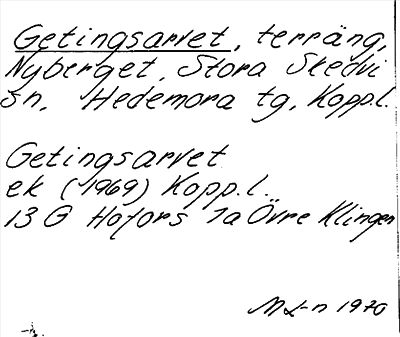 Getingsarvet, terräng,
Nyberget, Stora Skedvi
sn, Hedemora tg, Kopp.l.
Getingsarvet
ek (1969) Kopp.l.
13 G Hofors 7a Övre Klingen
M L-n 1970